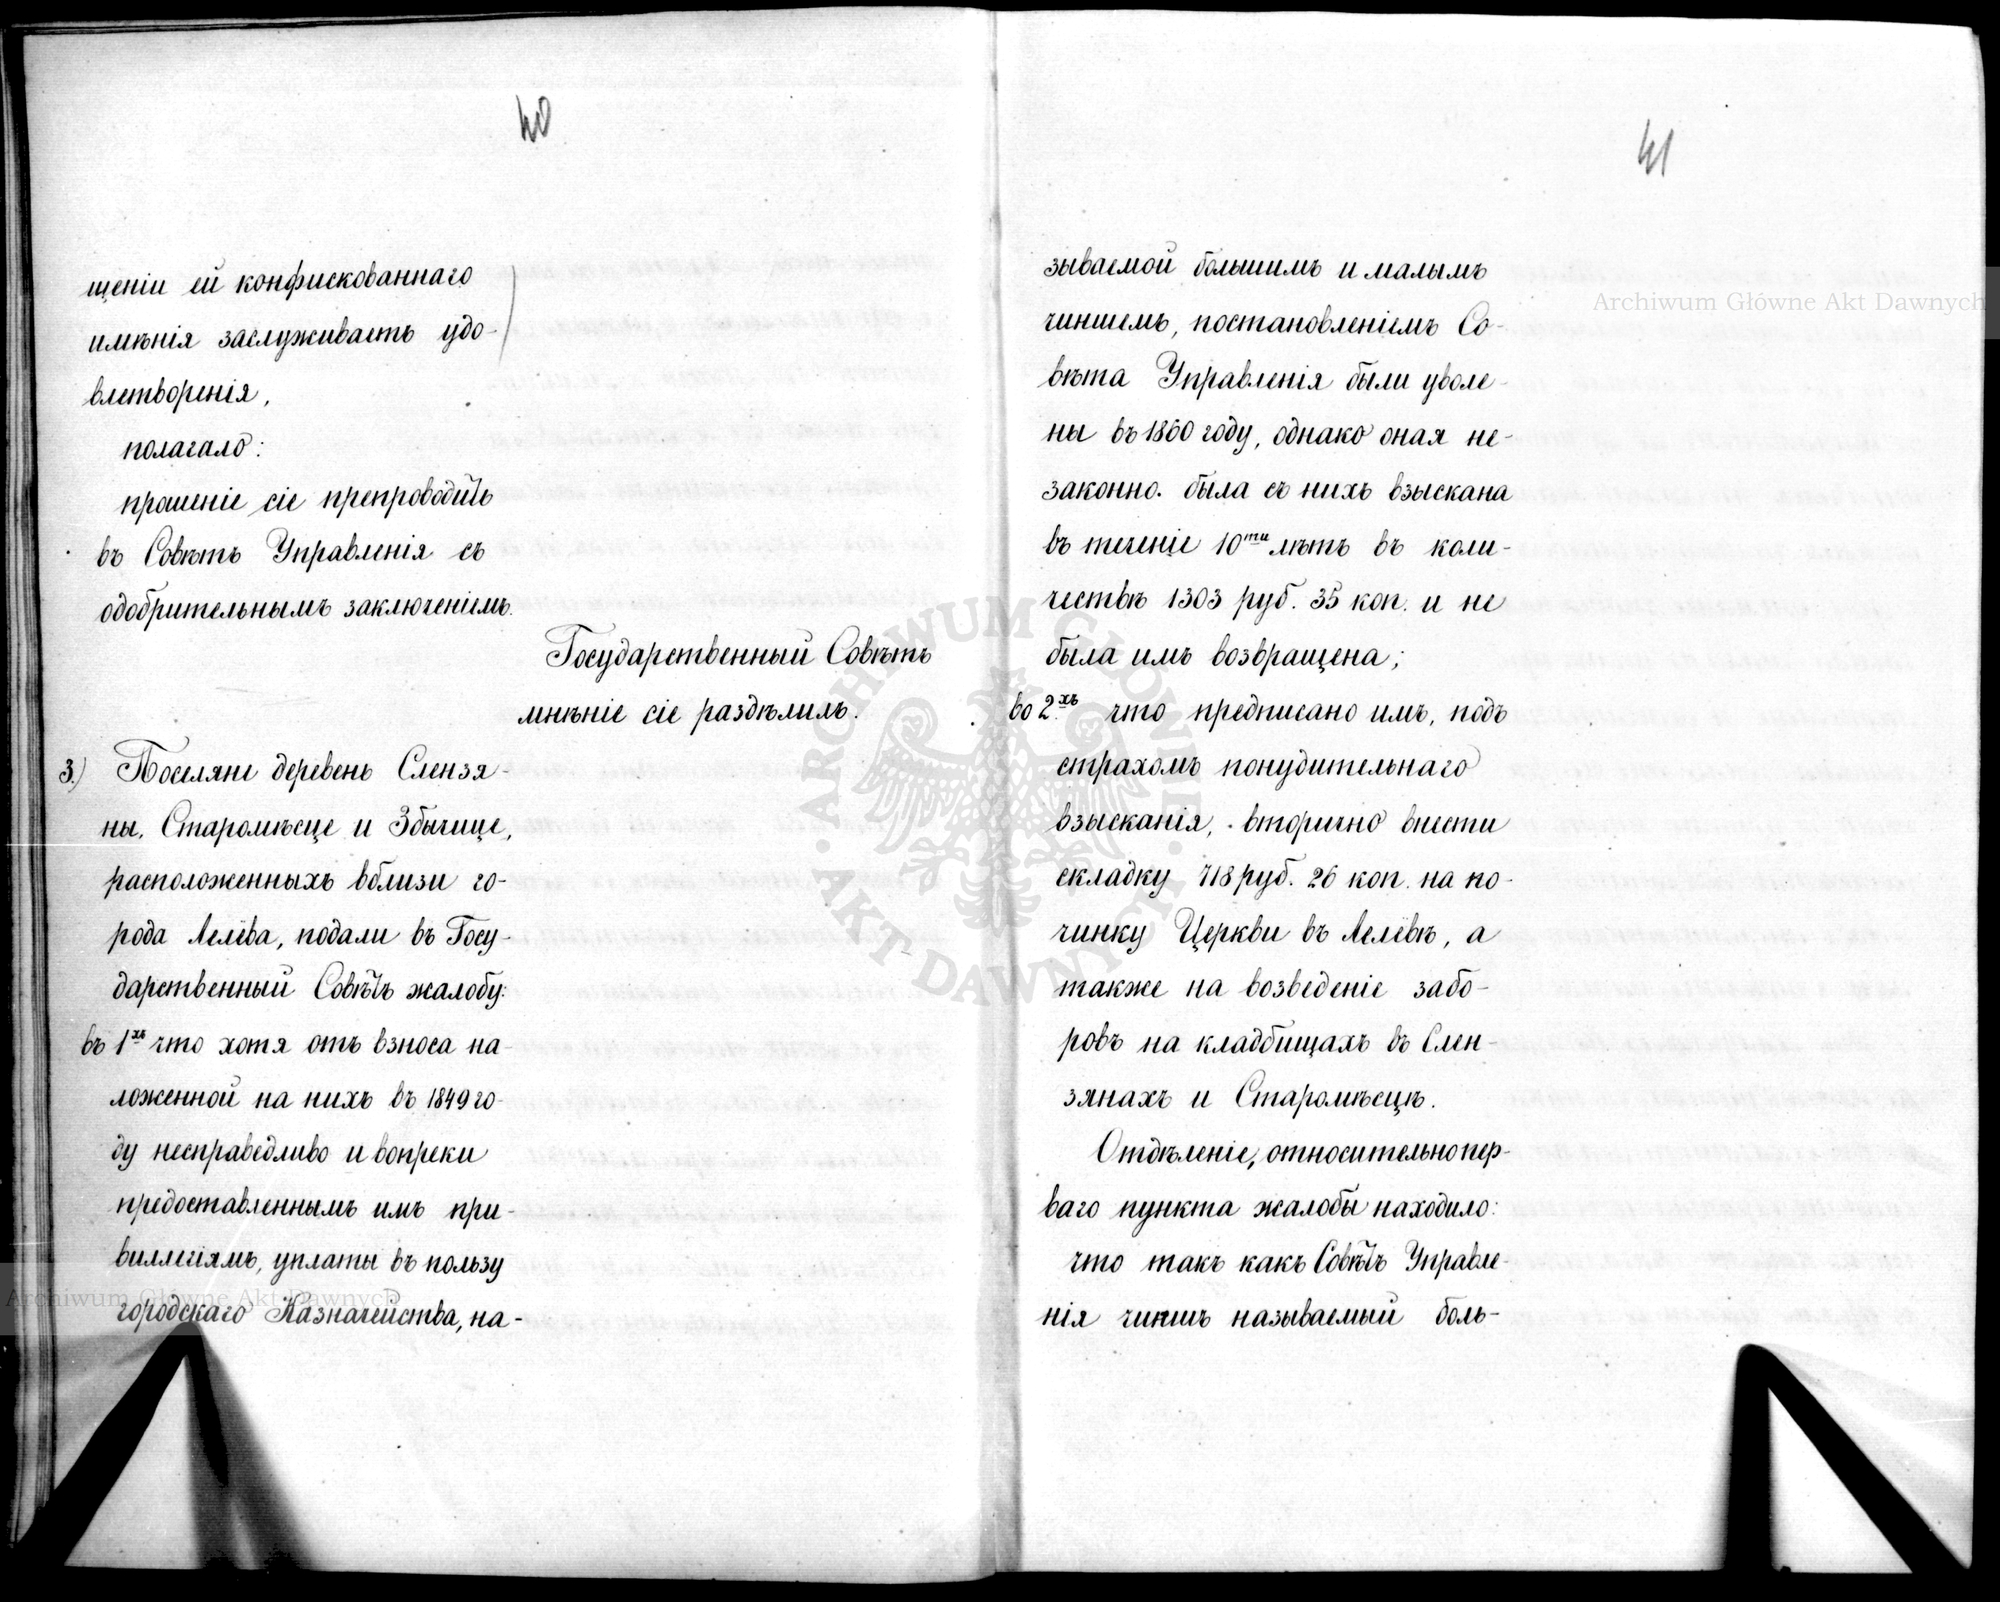 40
щеніи ей конфискованнаго
имѣнія заслуживаетъ удо-
влетворенія,
полагало:
прошеніе сіе препроводить
въ Совѣтъ Управленія съ
одобрительнымъ заключеніемъ.
Государственный Совѣтъ
мнѣніе сіе раздѣлилъ.
3.) Поселяне деревень Слензя-
ны, Старомѣсце и Збычице,
расположенныхъ вблизи го-
рода Лелёва, подали въ Госу-
дарственный Совѣтъ жалобу:
въ 1хъ что хотя отъ взноса на-
ложенной на нихъ въ 1849 го-
ду несправедливо и вопреки
предоставленнымъ имъ при-
виллегіямъ, уплаты въ пользу
городскаго Казначейства, на-
41
зываемой большимъ и малымъ
чиншемъ, постановленіемъ Со-
вѣта Управленія были уволе-
ны въ 1860 году, однако оная не-
законно. была съ нихъ взыскана
въ теченіе 10ти лѣтъ въ коли-
чествѣ 1303 руб. 35 коп. и не
была имъ возвращена;
во 2.хъ что предписано имъ, подъ
страхомъ понудительнаго
взысканія, вторично внести
складку 718 руб. 26 коп. на по-
чинку Церкви въ Лелёвѣ, а
также на возведеніе забо-
ровъ на кладбищахъ въ Слен-
зянахъ и Старомѣсцѣ.
Отдѣленіе, относительно пер-
ваго пункта жалобы находило:
что такъ какъ Совѣтъ Управле-
нія чиншъ называемый боль-
Archiwum Główne Akt Dawnych
ARCHIWUM GŁÓWNE
AKT DAWNYCH
Archiwum Główne Akt Dawnych